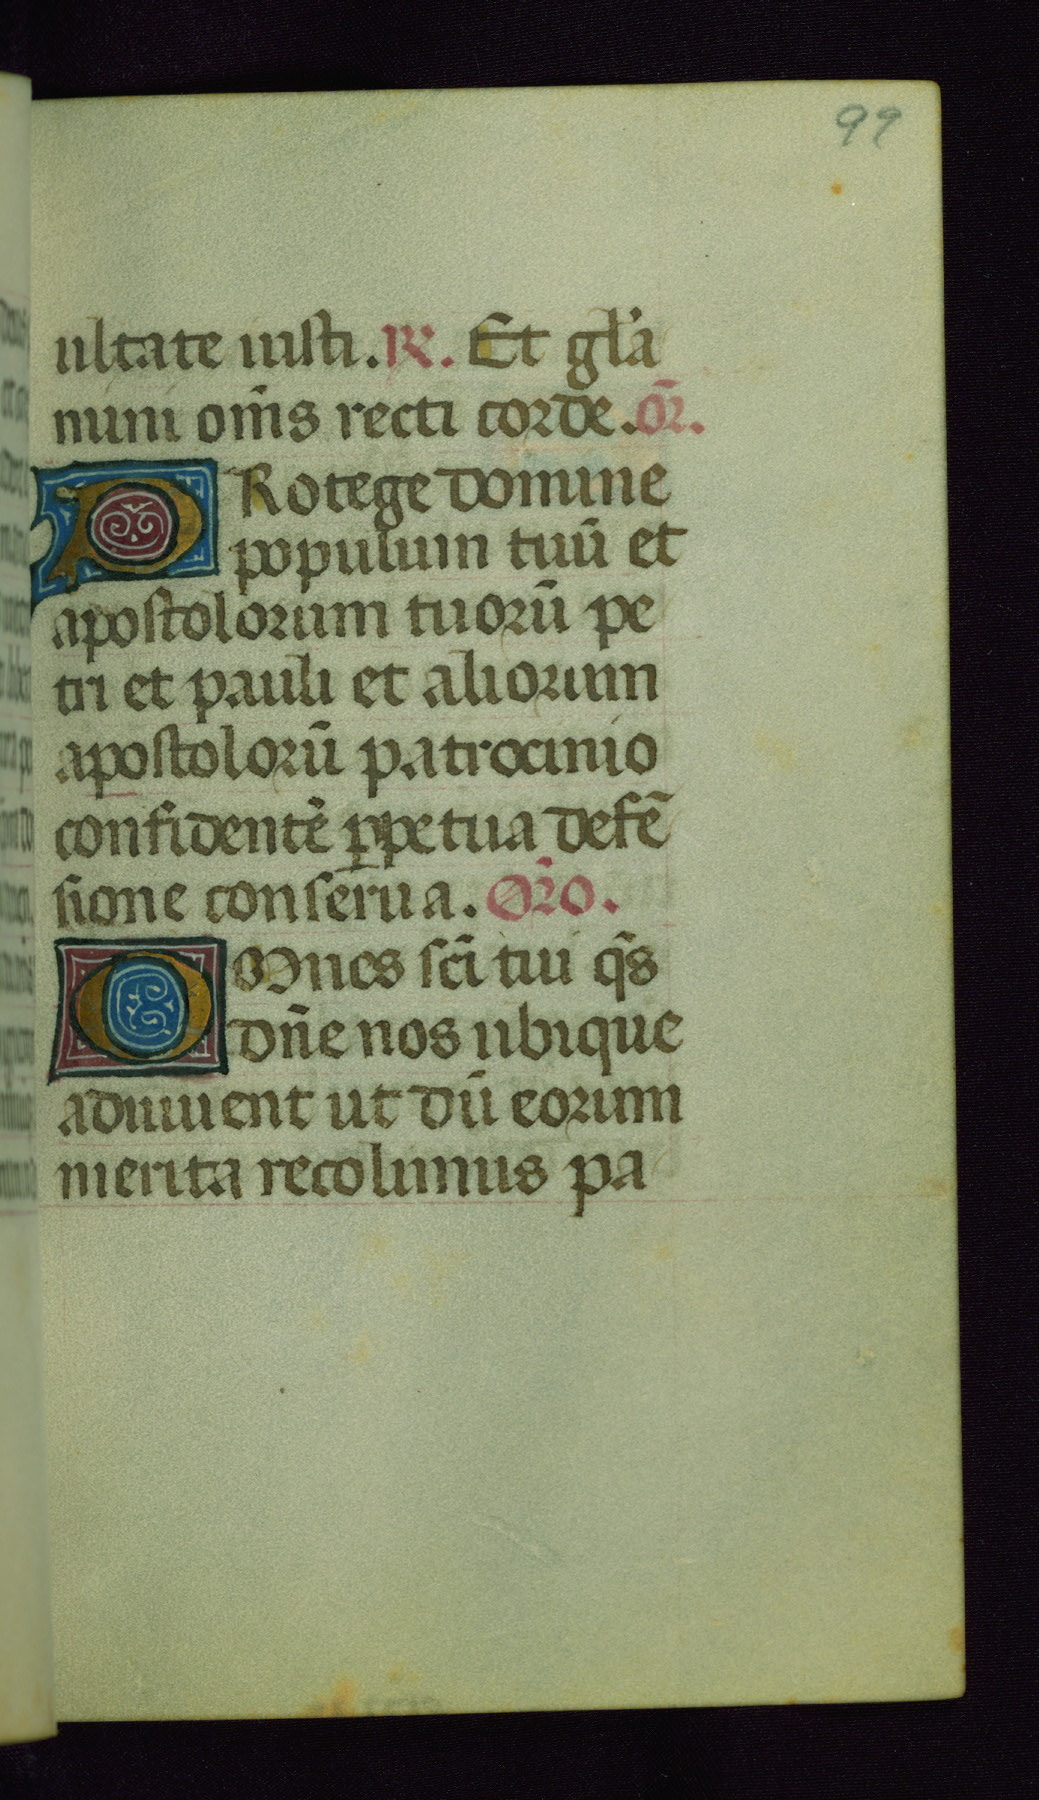 99
ultate iusti. R. Et gl̃a
mini om̃s recti corde. or̃.
PRotege domine
populum tuũ et
apostolorum tuorũ pe
tri et pauli et aliorum
apostolorũ patrocinio
confidentẽ ꝑpetua defẽ
sione conserua. Or̃o.
OMnes sc̃i tui q̃s
dñe nos ubique
adiuuent ut dũ eorum
merita recolimus pa